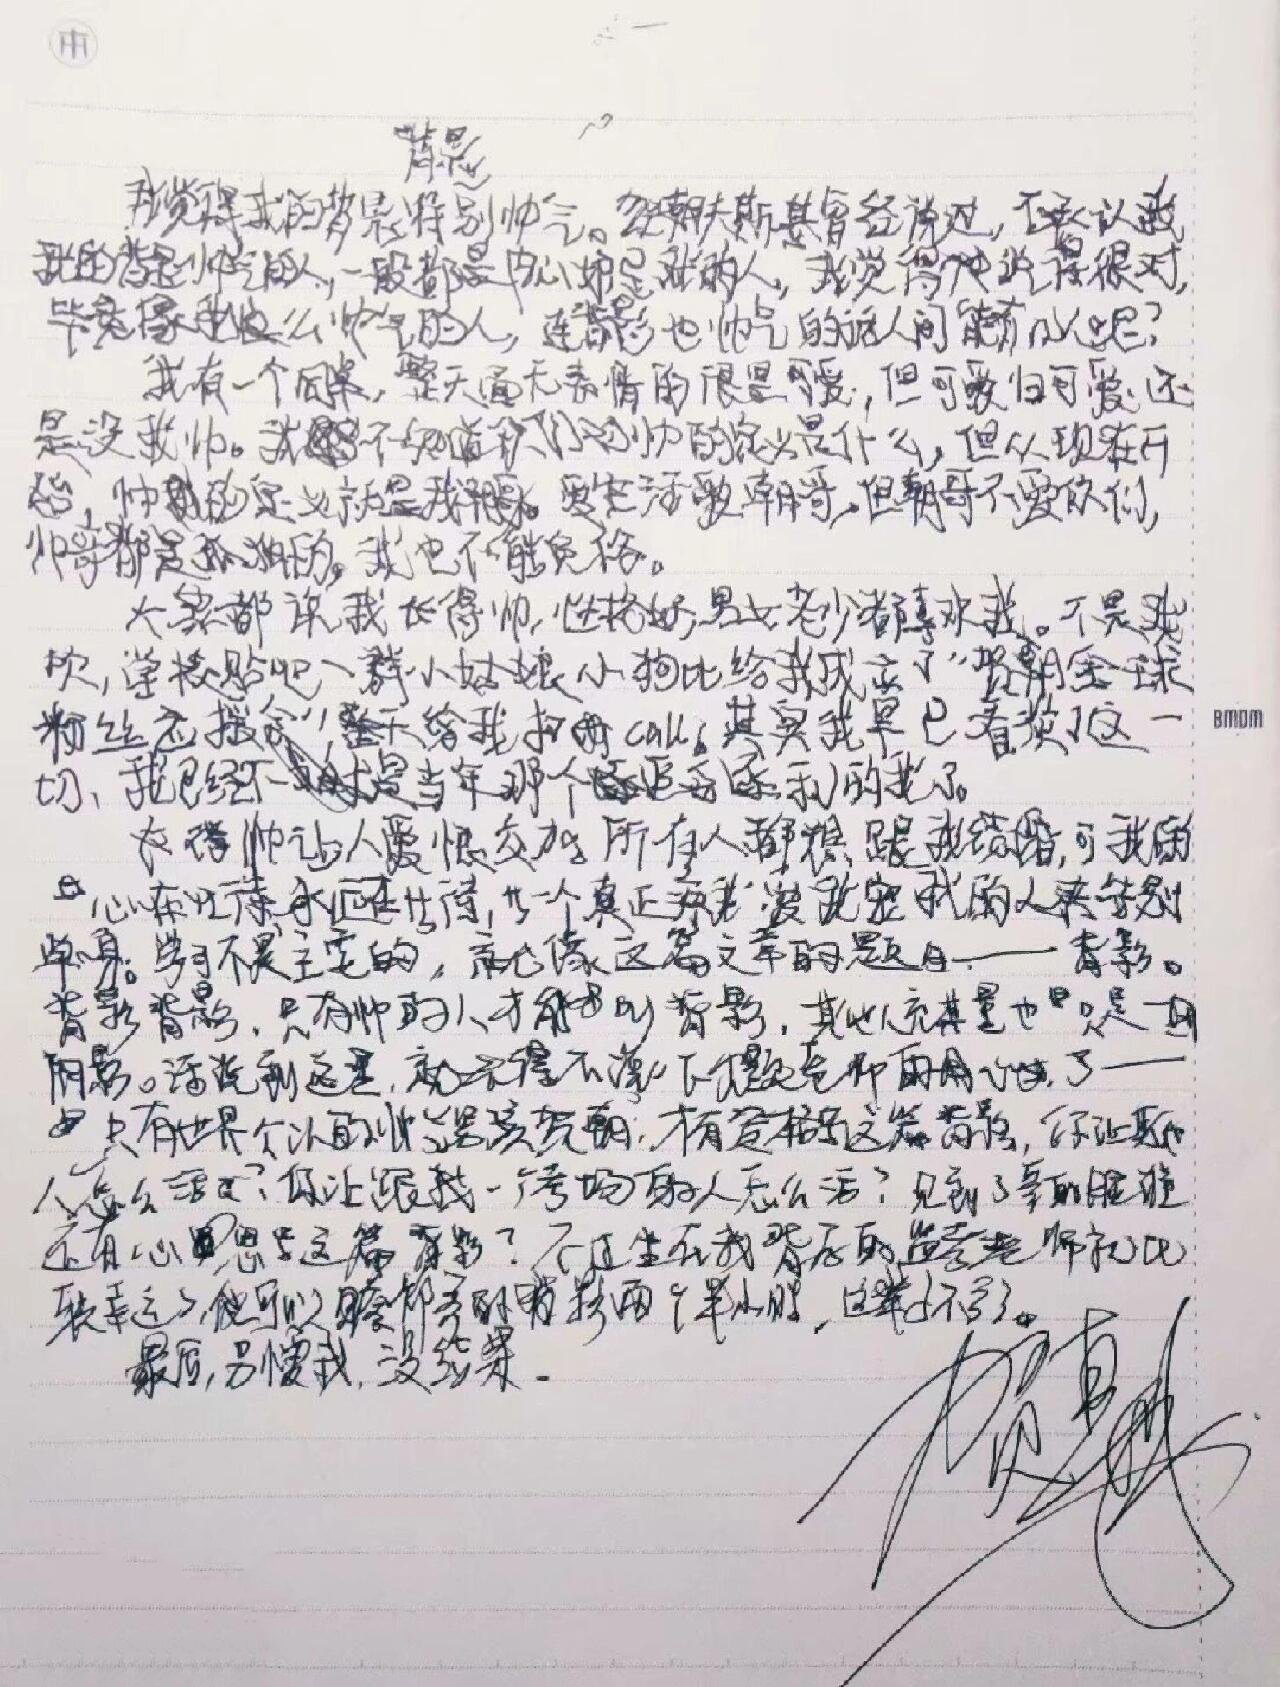 背影
我觉得我的背影特别帅气。贺朝夫斯基曾经说过，不承认我
我的背影帅气的人，一般都是内心嫉妒我的人，我觉得他说得很对，
毕竟像我这么帅气的人，连背影也帅气的话人间能有几个呢？
我有一个同桌，整天面无表情的很是可爱，但可爱归可爱，还
是没我帅。我不知道你们对帅的定义是什么，但从现在开
始，帅的定义就是我朝哥。爱生活爱朝哥，但朝哥不爱你们，
帅哥都是孤独的，我也不能免俗。
大家都说我长得帅，性格好，男女老少都喜欢我。不是我
吹，学校贴吧一群小姑娘小狗比给我成立了“贺朝全球
粉丝应援会”整天给我打call。其实我早已看淡了这一
切，我已经不是当年那个追名逐利的我了。
长得帅让人爱恨交加，所有人都想跟我结婚，可我的
心在忙着等，等一个真正爱我宠我的人来告别
单身。帅不是主宰的，就像这篇文章的题目——背影。
背影背影，只有帅的人才能叫背影，其他人充其量也只是一团
阴影。话说到这里，就不得不谈一下出题老师的用心了——
只有世界公认的帅哥贺朝，才有资格写这篇背影，你让别
人怎么活？你让跟我一个考场的人怎么活？见到了我的脸谁
还有心思写这篇背影？不过坐在我背后的监考老师就比
较幸运了，他可以瞻仰我的背影两个半小时，这辈子不亏了。
最后，别爱我，没结果。
贺朝
BMDM